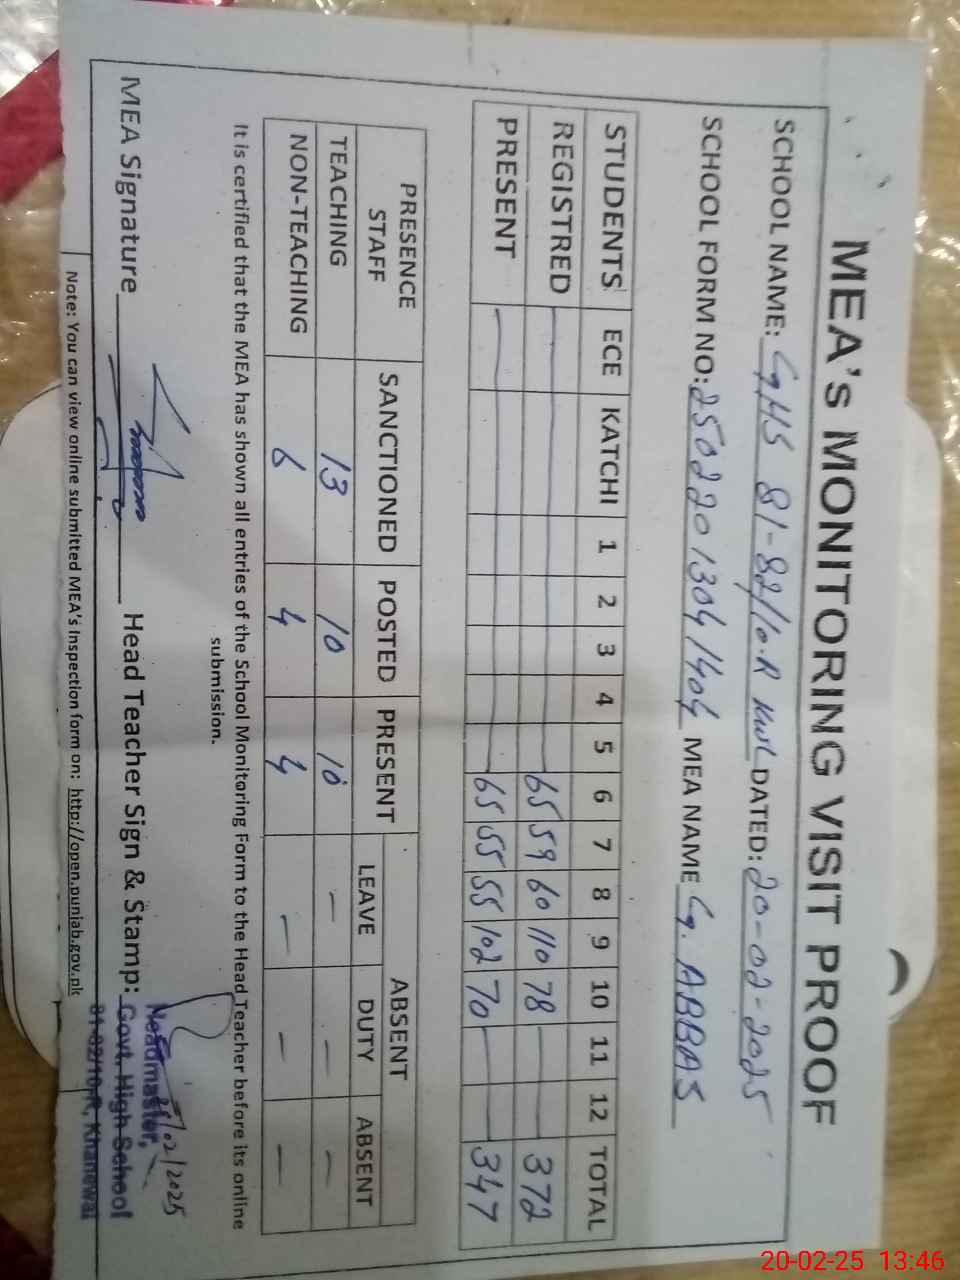 MEA'S MONITORING VISIT PROOF
SCHOOL NAME: GHS 81-82/10.R KWL DATED: 20-02-2025
SCHOOL FORM NO: 25022013041404 MEA NAME G. ABBAS
STUDENTS ECE KATCHI 1 2 3 4 5 6 7 8 9 10 11 12 TOTAL
REGISTRED 65 59 60 110 78 372
PRESENT 65 55 55 102 70 347
PRESENCE STAFF SANCTIONED POSTED PRESENT ABSENT
LEAVE DUTY ABSENT
TEACHING 13 10 10 — — —
NON-TEACHING 6 4 4 — — —
It is certified that the MEA has shown all entries of the School Monitoring Form to the Head Teacher before its online
submission.
MEA Signature Head Teacher Sign & Stamp:
/02/2025
Headmaster,
Govt. High School
81-82/10-R, Khanewal
Note: You can view online submitted MEA's Inspection form on: http://open.punjab.gov.pk
20-02-25 13:46